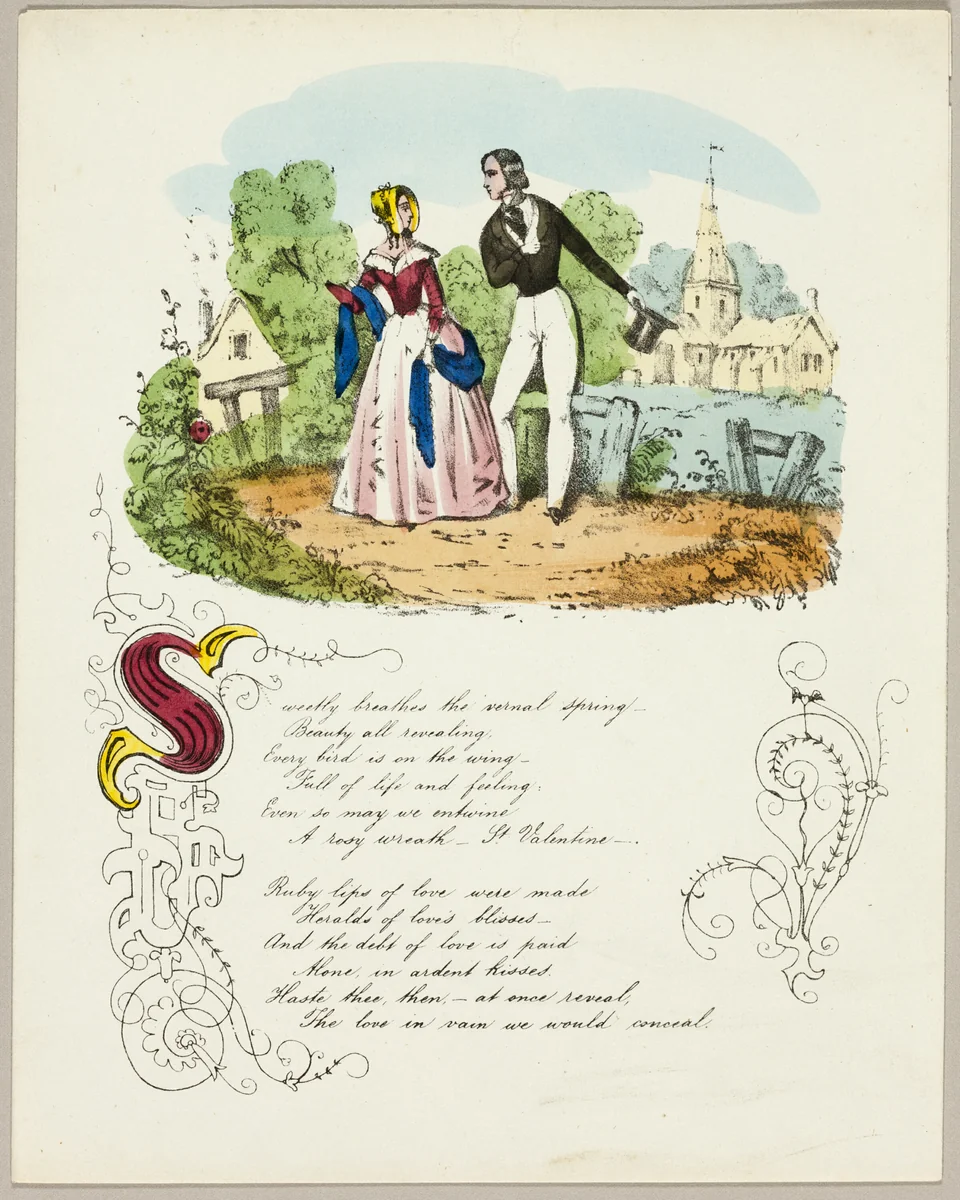 Sweetly breathes the vernal spring —
Beauty all revealing.
Every bird is on the wing —
Full of life and feeling:
Even so may we entwine
A rosy wreath — St Valentine —.
Ruby lips of love were made
Heralds of love's blisses —
And the debt of love is paid
Alone, in ardent kisses.
Haste thee, then, — at once reveal,
The love in vain we would conceal.